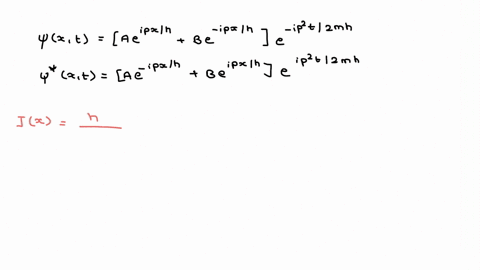 ψ(x,t) = [Ae^{ipx/h} + Be^{-ipx/h}] e^{-ip²t/2mh}
ψ*(x,t) = [Ae^{-ipx/h} + Be^{ipx/h}] e^{ip²t/2mh}
J(x) = h/